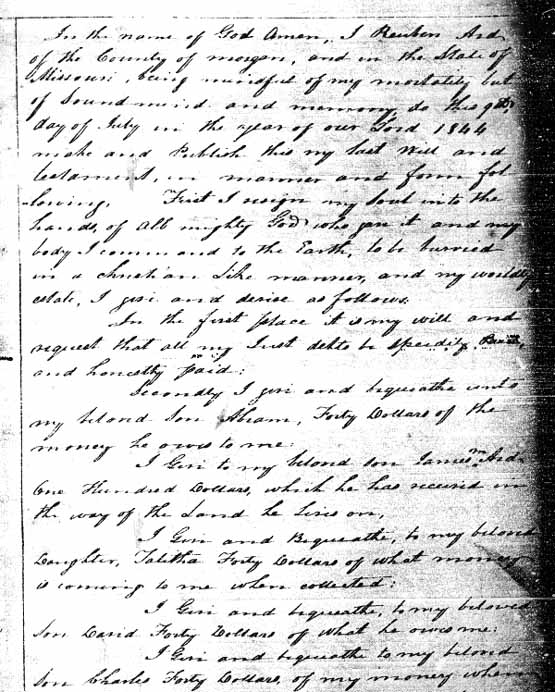 In the name of God Amen, I Reuben Ard,
of the County of morgan, and in the State of
Missouri, being mindful of my mortality but
of Sound mind and memory do this 9th
day of July in the year of our Lord 1844
make and Publish this my last Will and
testament, in manner and form fol
lowing. First I resign my Soul into the
hands, of all mighty God who gav it and my
body I commend to the Earth, to be burried
in a christian like manner, and my worldly
estate, I give and devise as follows.
In the first place it is my will and
request that all my Just debts be speedily
and honestly paid:
Secondly I give and bequeathe unto
my beloved Son Abram, Forty Dollars of the
money he owes to me:
I Give to my beloved son James m Ard
One Hundred Dollars, which he has received in
the way of the Land he lives on,
I Give and Bequeathe, to my beloved
Daughter, Talitha Forty Dollars of what money
is coming to me when collected:
I Give and bequeathe, to my beloved
Son David Forty Dollars of what he owes me:
I Give and bequeathe to my beloved
Son Charles Forty Dollars, of my money when